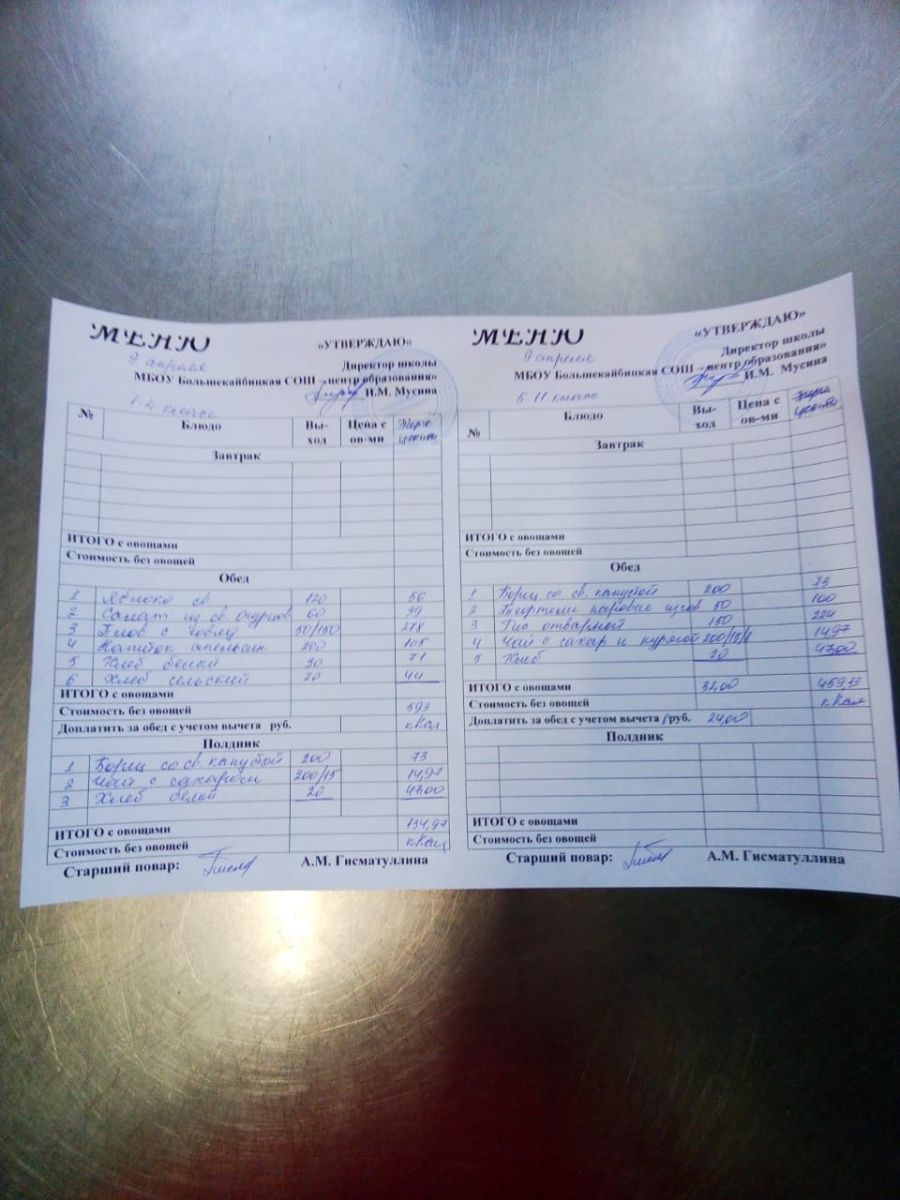 МЕНЮ
9 апреля
«УТВЕРЖДАЮ»
Директор школы
МБОУ Большекайбицкая СОШ – центр образования»
И.М. Мусина
1-4 класс
№ Блюдо Вы-ход Цена с ов-ми
Завтрак
ИТОГО с овощами
Стоимость без овощей
Обед
1 Яблоко св 120 56
2 Салат из св. огурцов 60 39
3 Плов с 50/150 278
4 Напиток апельсин. 200 105
5 Хлеб белый 30 71
6 Хлеб сельский 20 44
ИТОГО с овощами
Стоимость без овощей 593
Доплатить за обед с учетом вычета руб. кКал
Полдник
1 Борщ со св. капустой 200 73
2 Чай с сахаром 200/15 14,97
3 Хлеб белый 20 47,00
ИТОГО с овощами 134,97
Стоимость без овощей кКал
Старший повар: А.М. Гисматуллина
МЕНЮ
9 апреля
«УТВЕРЖДАЮ»
Директор школы
МБОУ Большекайбицкая СОШ – центр образования»
И.М. Мусина
5-11 класс
№ Блюдо Вы-ход Цена с ов-ми
Завтрак
ИТОГО с овощами
Стоимость без овощей
Обед
1 Борщ со св. капустой 200 73
2 паровые 50 100
3 Рис отварной 150 224
4 Чай с сахар и курагой 200/15/8 14,97
5 Хлеб 20 47,00
ИТОГО с овощами 32,00
Стоимость без овощей кКал
Доплатить за обед с учетом вычета руб. 24,00
Полдник
ИТОГО с овощами
Стоимость без овощей
Старший повар: А.М. Гисматуллина